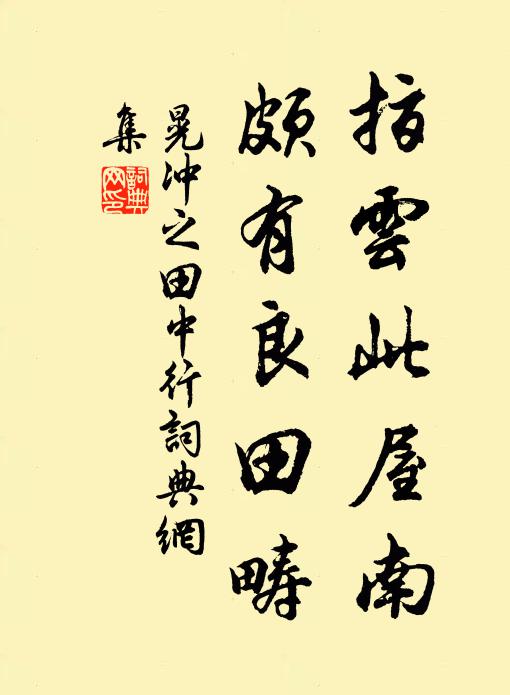 指雲此屋南
頗有良田疇
晁冲之田中行詞典網
集
詞典網印